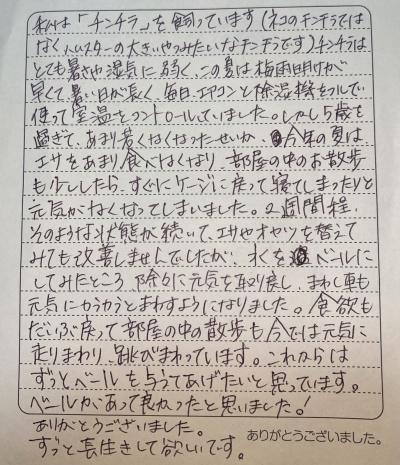 私は「チンチラ」を飼っています(ネコのチンチラでは
なくハムスターの大きいやつみたいなチンチラです)チンチラは
とても暑さや湿気に弱く、この夏は梅雨明けが
早くて暑い日が長く、毎日エアコンと除湿機をフルで
使って室温をコントロールしていました。しかし5歳を
過ぎて、あまり若くなくなったせいか、今年の夏は
エサをあまり食べなくなり、部屋の中のお散歩
も少ししたら、すぐにケージに戻って寝てしまったりと
元気がなくなってしまいました。2週間程、
そのような状態が続いて、エサやオヤツを替えて
みても改善しませんでしたが、水をベールに
してみたところ、除々に元気を取り戻し、まわし車も
元気にカラカラとまわすようになりました。食欲も
だいぶ戻って部屋の中の散歩も今では元気に
走りまわり、跳びまわっています。これからは
ずっとベールを与えてあげたいと思っています。
ベールがあって良かったと思いました!
ありがとうございました。
ずっと長生きして欲しいです。
ありがとうございました。